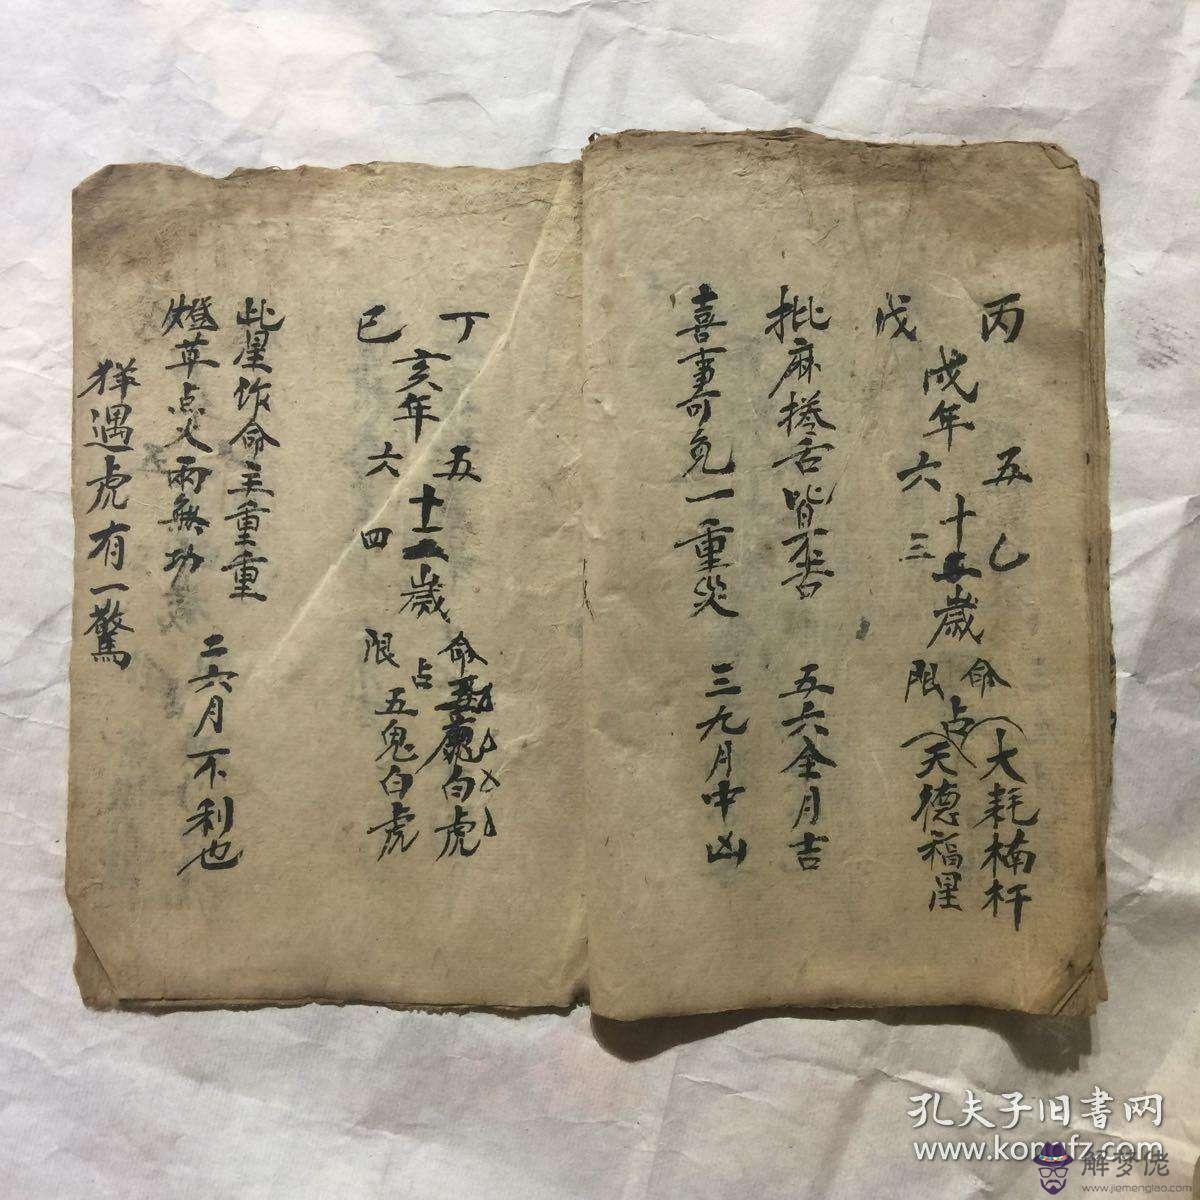 丙 五乙
戌年 十二歲
戊 六三
命 大耗楠杆
占
限 天德福星
批麻捲舌皆不吉 五六全月吉
喜事可免一重災 三九月中凶
丁 五
亥年 十二歲
已 六四
命 五鬼白虎
占
限 五鬼白虎
此星作命主重重
燈草点火兩無功 二六月不利也
猪遇虎有一驚
孔夫子旧書网
www.kongfz.com
解梦佬
www.jiemenglao.com